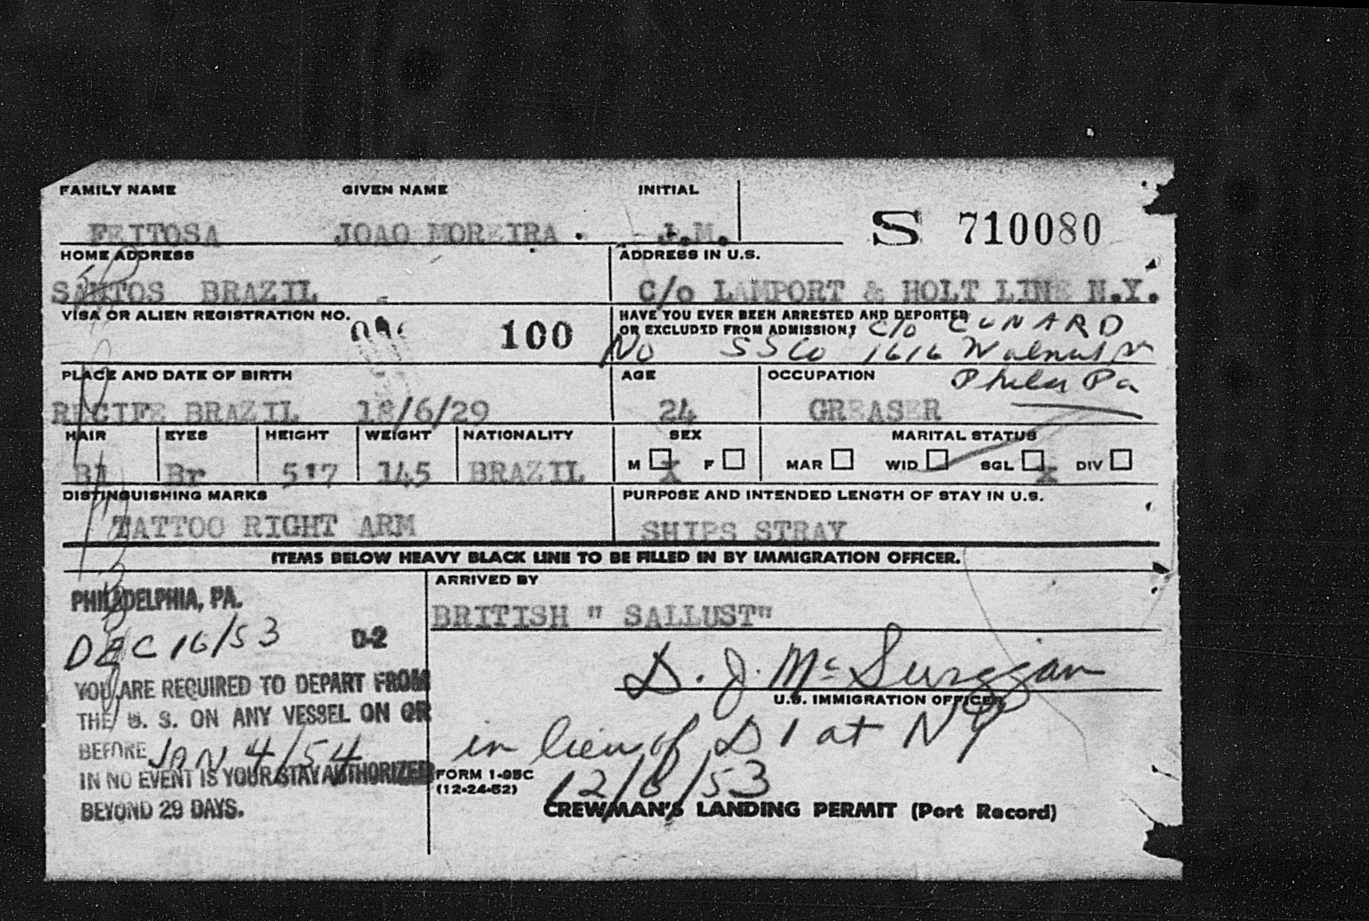 FAMILY NAME GIVEN NAME INITIAL
FEITOSA JOAO MOREIRA . J.M. S 710080
HOME ADDRESS ADDRESS IN U.S.
SANTOS BRAZIL C/o LAMPORT & HOLT LINE N.Y.
VISA OR ALIEN REGISTRATION NO. HAVE YOU EVER BEEN ARRESTED AND DEPORTED
OR EXCLUDED FROM ADMISSION? C/O CUNARD
100 No SS Co 1616 Walnut St
PLACE AND DATE OF BIRTH AGE OCCUPATION Phila Pa
RECIFE BRAZIL 18/6/29 24 GREASER
HAIR EYES HEIGHT WEIGHT NATIONALITY SEX MARITAL STATUS
M F MAR WID SGL DIV
Bl Br 5'7 145 BRAZIL X X
DISTINGUISHING MARKS PURPOSE AND INTENDED LENGTH OF STAY IN U.S.
TATTOO RIGHT ARM SHIPS STRAY
ITEMS BELOW HEAVY BLACK LINE TO BE FILLED IN BY IMMIGRATION OFFICER.
ARRIVED BY
BRITISH " SALLUST"
PHILADELPHIA, PA.
DEC 16/53 D-2
YOU ARE REQUIRED TO DEPART FROM
THE U. S. ON ANY VESSEL ON OR
BEFORE JAN 4/54
IN NO EVENT IS YOUR STAY AUTHORIZED
BEYOND 29 DAYS.
D. J. Mc
U.S. IMMIGRATION OFFICER
in lieu of D1 at NY
12/6/53
FORM I-95C
(12-24-52)
CREWMAN'S LANDING PERMIT (Port Record)